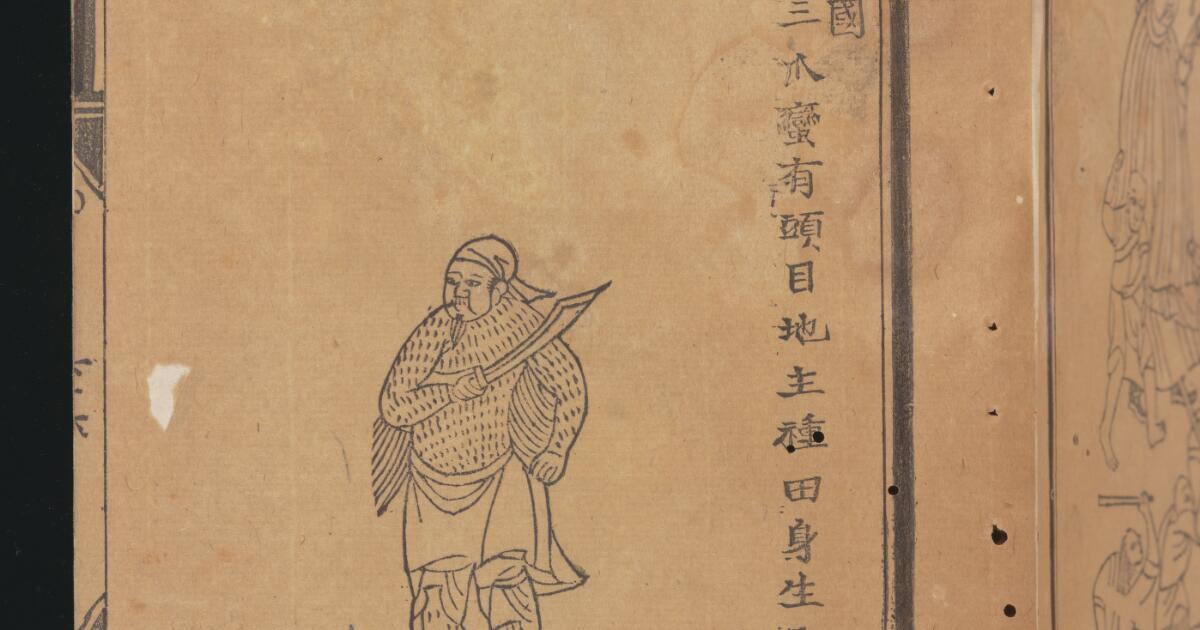 國
三爪蠻有頭目地主種田身生